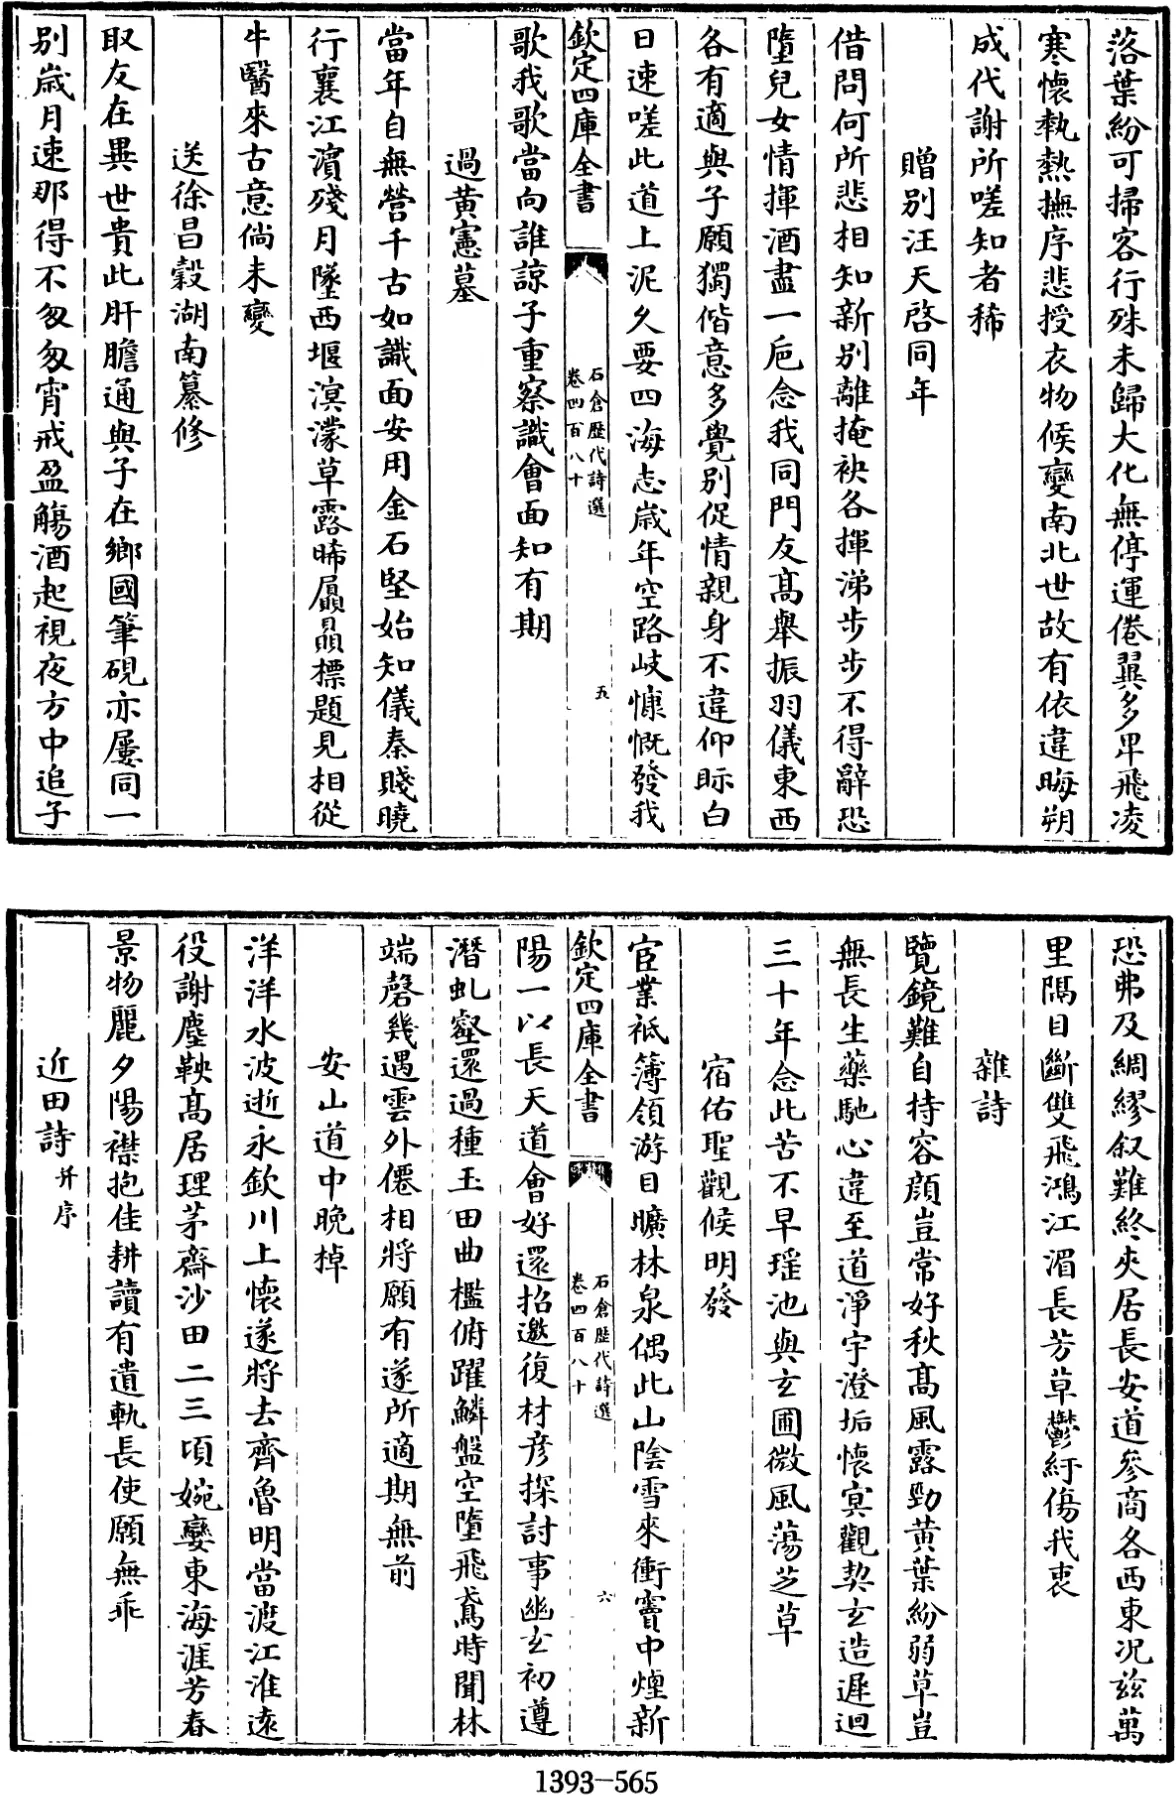 落葉紛可掃客行殊未歸大化無停運倦翼多卑飛凌
寒懷執熱撫序悲授衣物候變南北世故有依違晦朔
成代謝所嗟知者稀
贈别汪天啓同年
借問何所悲相知新别離掩袂各揮涕步步不得辭恐
墮兒女情揮酒盡一巵念我同門友髙舉振羽儀東西
各有適與子願獨偕意多覺别促情親身不違仰眎白
日速嗟此道上泥久要四海志歳年空路岐慷慨發我
欽定四庫全書
石倉歴代詩選
卷四百八十
五
歌我歌當向誰諒子重察識會面知有期
過黄憲墓
當年自無營千古如識面安用金石堅始知儀秦賤曉
行襄江濵殘月墜西堰溟濛草露晞屭贔標題見相從
牛醫來古意倘未變
送徐昌穀湖南纂修
取友在異世貴此肝膽通與子在鄉國筆硯亦屢同一
别歳月速那得不匆匆宵戒盈觴酒起視夜方中追子
恐弗及綢繆叙難終夾居長安道參商各西東况兹萬
里隔目斷雙飛鴻江湄長芳草鬱紆傷我衷
雜詩
覽鏡難自持容顔豈常好秋髙風露勁黄葉紛弱草豈
無長生藥馳心違至道淨宇澄垢懷冥觀契玄造遲迴
三十年念此苦不早瑤池與玄圃微風蕩芝草
宿佑聖觀候明發
宦業祗簿領游目曠林泉偶此山陰雪來衝竇中煙新
欽定四庫全書
石倉歴代詩選
卷四百八十
六
陽一以長天道會好還招邀復材彦探討事幽玄初遵
潛虬壑還過種玉田曲檻俯躍鱗盤空墮飛鳶時聞林
端磬幾遇雲外僊相將願有遂所適期無前
安山道中晚棹
洋洋水波逝永欽川上懷遂將去齊魯明當渡江淮遠
役謝塵鞅髙居理茅齋沙田二三頃婉孌東海涯芳春
景物麗夕陽襟抱佳耕讀有遺軌長使願無乖
近田詩并序
1393-565